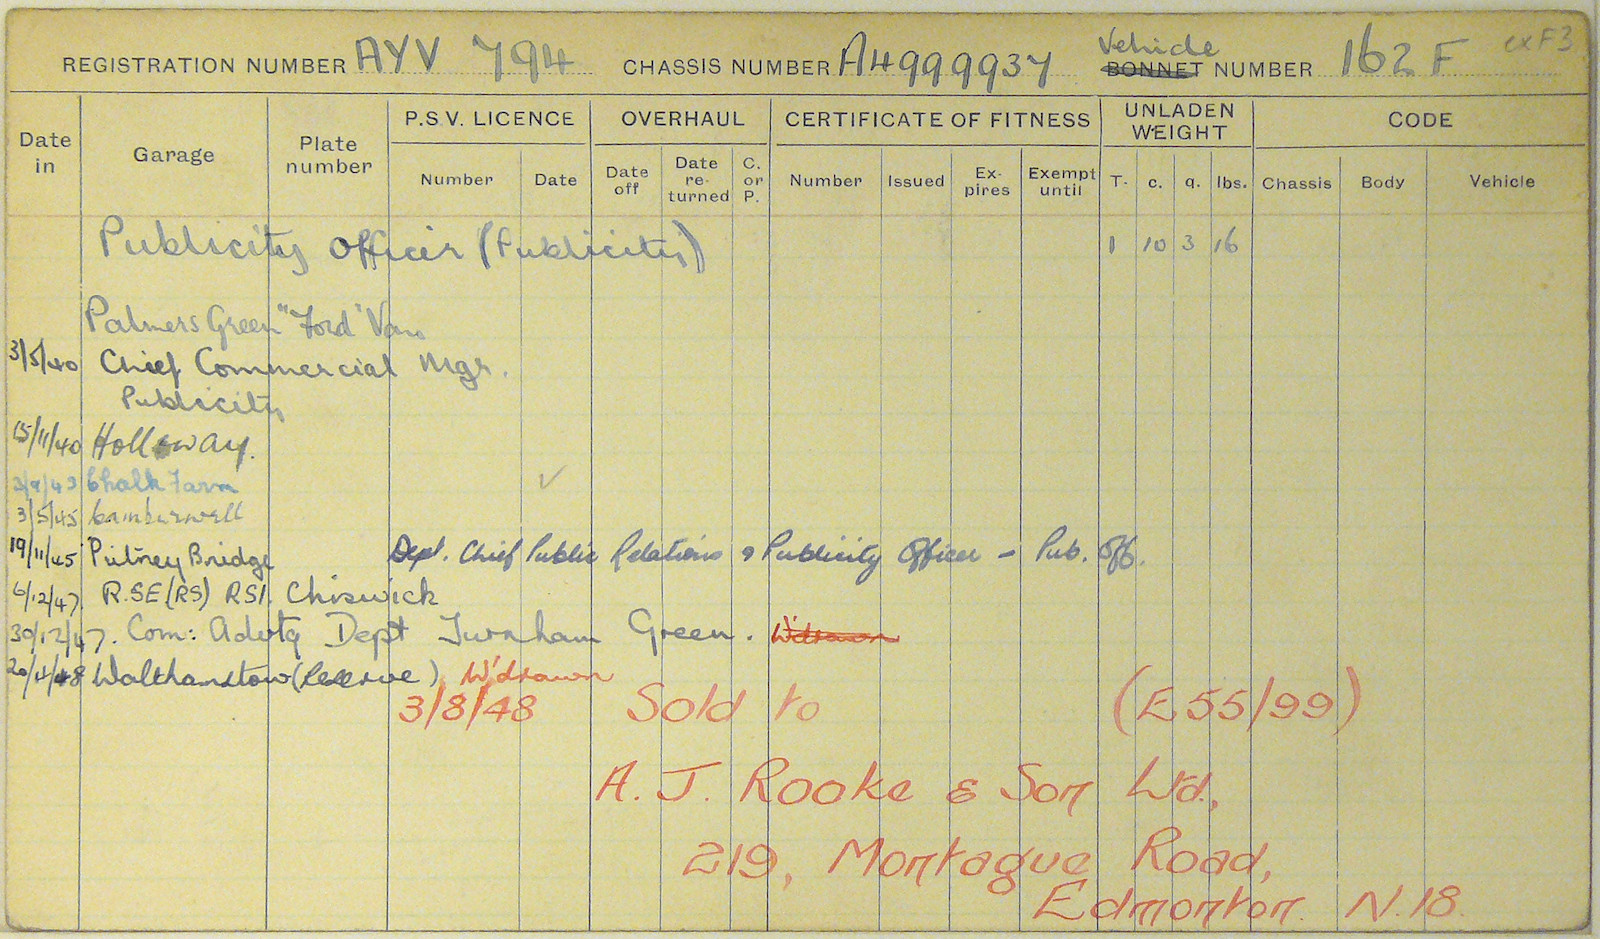 REGISTRATION NUMBER AYV 794 CHASSIS NUMBER A4999937 Vehicle BONNET NUMBER 162 F ex F3
Date in Garage Plate number P.S.V. LICENCE OVERHAUL CERTIFICATE OF FITNESS UNLADEN WEIGHT CODE
Number Date Date off Date re-turned C. or P. Number Issued Ex-pires Exempt until T. c. q. lbs. Chassis Body Vehicle
Publicity Officer (Publicity) 1 10 3 16
Palmers Green "Ford" Van
3/5/40 Chief Commercial Mgr.
Publicity
15/11/40 Holloway.
2/9/43 Chalk Farm ✓
3/5/45 Camberwell
19/11/45 Putney Bridge Dept. Chief Public Relations & Publicity Officer – Pub. Off.
6/12/47. R.S.E (RS) RS1. Chiswick
30/12/47. Com: Advtg Dept Turnham Green. W'drawn
20/4/48 Walthamstow (Reserve) W'drawn
3/8/48 Sold to (E55/99)
A. J. Rooke & Son Ltd.,
219, Montague Road,
Edmonton N.18.